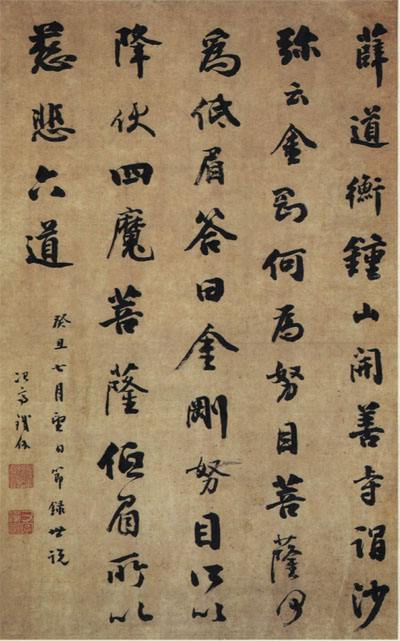 薛道衡鍾山開善寺謂沙
弥云金剛何為努目菩薩何
為低眉答曰金剛努目所以
降伏四魔菩薩低眉所以
慈悲六道
癸丑七月望日節錄世说
冶亭鐵保